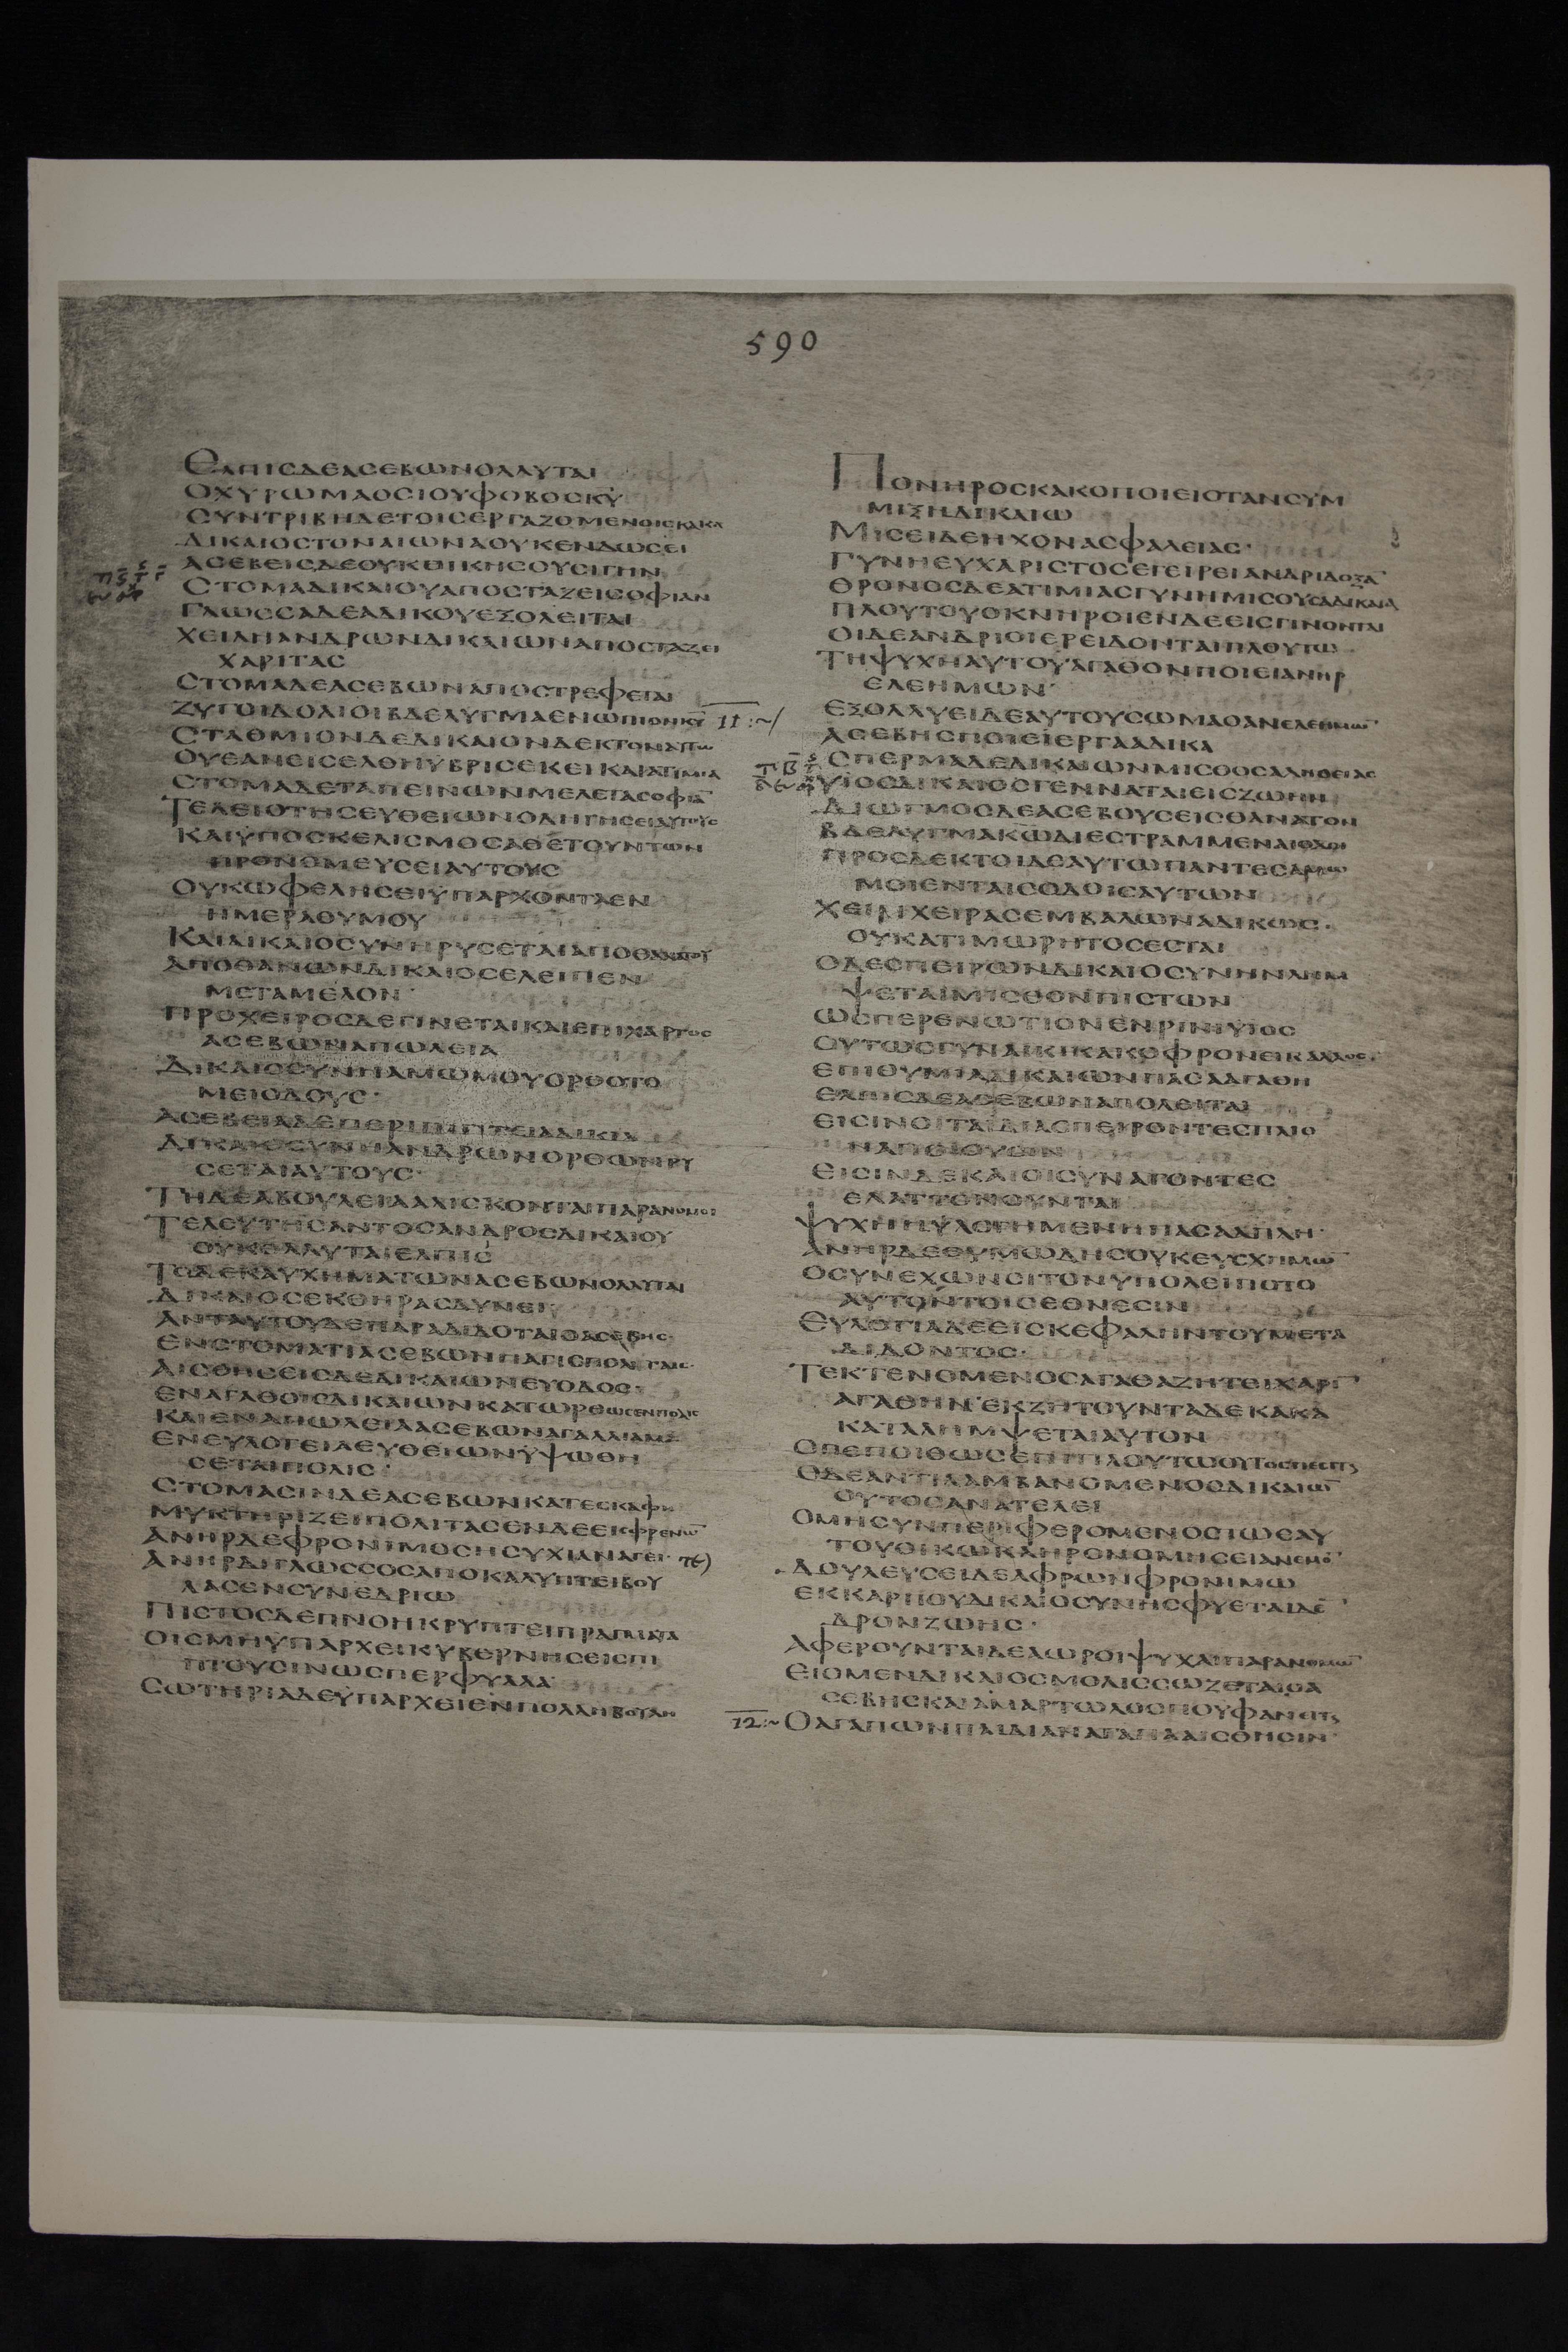 590
ΕΛΠΙϹΔΕΑϹΕΒΩΝΟΛΛΥΤΑΙ
ΟΧΥΡΩΜΑΟϹΙΟΥΦΟΒΟϹΚΥ
ϹΥΝΤΡΙΒΗΔΕΤΟΙϹΕΡΓΑΖΟΜΕΝΟΙϹΚΑΚΑ
ΔΙΚΑΙΟϹΤΟΝΑΙΩΝΑΟΥΚΕΝΔΩϹΕΙ
ΑϹΕΒΕΙϹΔΕΟΥΚΟΙΚΗϹΟΥϹΙΓΗΝ
ϹΤΟΜΑΔΙΚΑΙΟΥΑΠΟϹΤΑΖΕΙϹΟΦΙΑΝ
ΓΛΩϹϹΑΔΕΑΔΙΚΟΥΕΞΟΛΕΙΤΑΙ
ΧΕΙΛΗΑΝΔΡΩΝΔΙΚΑΙΩΝΑΠΟϹΤΑΖΕΙ
ΧΑΡΙΤΑϹ
ϹΤΟΜΑΔΕΑϹΕΒΩΝΑΠΟϹΤΡΕΦΕΤΑΙ
ΖΥΓΟΙΔΟΛΙΟΙΒΔΕΛΥΓΜΑΕΝΩΠΙΟΝΚΥ 11:~/
ϹΤΑΘΜΙΟΝΔΕΔΙΚΑΙΟΝΔΕΚΤΟΝΑΥΤΩ
ΟΥΕΑΝΕΙϹΕΛΘΗΥΒΡΙϹΕΚΕΙΚΑΙΑΤΙΜΙΑ
ϹΤΟΜΑΔΕΤΑΠΕΙΝΩΝΜΕΛΕΤΑϹΟΦΙΑ̅
ΤΕΛΕΙΟΤΗϹΕΥΘΕΙΩΝΟΔΗΓΗϹΕΙΑΥΤΟΥϹ
ΚΑΙΥΠΟϹΚΕΛΙϹΜΟϹΑΘΕΤΟΥΝΤΩΝ
ΠΡΟΝΟΜΕΥϹΕΙΑΥΤΟΥϹ
ΟΥΚΩΦΕΛΗϹΕΙΥΠΑΡΧΟΝΤΑΕΝ
ΗΜΕΡΑΘΥΜΟΥ
ΚΑΙΔΙΚΑΙΟϹΥΝΗΡΥϹΕΤΑΙΑΠΟΘΑΝΑΤΟΥ
ΑΠΟΘΑΝΩΝΔΙΚΑΙΟϹΕΛΕΙΠΕΝ
ΜΕΤΑΜΕΛΟΝ·
ΠΡΟΧΕΙΡΟϹΔΕΓΙΝΕΤΑΙΚΑΙΕΠΙΧΑΡΤΟϹ
ΑϹΕΒΩΝΑΠΩΛΕΙΑ
ΔΙΚΑΙΟϹΥΝΗΑΜΩΜΟΥΟΡΘΟΤΟ
ΜΕΙΟΔΟΥϹ·
ΑϹΕΒΕΙΑΔΕΠΕΡΙΠΙΠΤΕΙΑΔΙΚΙΑ
ΔΙΚΑΙΟϹΥΝΗΑΝΔΡΩΝΟΡΘΩΝΡΥ
ϹΕΤΑΙΑΥΤΟΥϹ·
ΤΗΔΕΑΒΟΥΛΕΙΑΑΛΙϹΚΟΝΤΑΙΠΑΡΑΝΟΜΟΙ
ΤΕΛΕΥΤΗϹΑΝΤΟϹΑΝΔΡΟϹΔΙΚΑΙΟΥ
ΟΥΚΟΛΛΥΤΑΙΕΛΠΙϹ
ΤΟΔΕΚΑΥΧΗΜΑΤΩΝΑϹΕΒΩΝΟΛΛΥΤΑΙ
ΔΙΚΑΙΟϹΕΚΘΗΡΑϹΔΥΝΕΙ
ΑΝΤΑΥΤΟΥΔΕΠΑΡΑΔΙΔΟΤΑΙΟΑϹΕΒΗϹ·
ΕΝϹΤΟΜΑΤΙΑϹΕΒΩΝΠΑΓΙϹΠΟΛΙΤΑΙϹ·
ΑΙϹΘΗϹΕΙϹΔΕΔΙΚΑΙΩΝΕΥΟΔΟϹ·
ΕΝΑΓΑΘΟΙϹΔΙΚΑΙΩΝΚΑΤΩΡΘΩϹΕΝΠΟΛΙϹ
ΚΑΙΕΝΑΠΩΛΕΙΑΑϹΕΒΩΝΑΓΑΛΛΙΑΜΑ
ΕΝΕΥΛΟΓΕΙΑΕΥΘΕΙΩΝΥΨΩΘΗ
ϹΕΤΑΙΠΟΛΙϹ·
ϹΤΟΜΑϹΙΝΔΕΑϹΕΒΩΝΚΑΤΕϹΚΑΦΗ
ΜΥΚΤΗΡΙΖΕΙΠΟΛΙΤΑϹΕΝΔΕΕΙϹΦΡΕΝΩ̅
ΑΝΗΡΔΕΦΡΟΝΙΜΟϹΗϹΥΧΙΑΝΑΓΕΙ·
ΑΝΗΡΔΙΓΛΩϹϹΟϹΑΠΟΚΑΛΥΠΤΕΙΒΟΥ
ΛΑϹΕΝϹΥΝΕΔΡΙΩ
ΠΙϹΤΟϹΔΕΠΝΟΗΚΡΥΠΤΕΙΠΡΑΓΜΑΤΑ
ΟΙϹΜΗΥΠΑΡΧΕΙΚΥΒΕΡΝΗϹΕΙϹΠΙ
ΠΤΟΥϹΙΝΩϹΠΕΡΦΥΛΛΑ
ϹΩΤΗΡΙΑΔΕΥΠΑΡΧΕΙΕΝΠΟΛΛΗΒΟΥΛΗ
ΠΟΝΗΡΟϹΚΑΚΟΠΟΙΕΙΟΤΑΝϹΥΜ
ΜΙΞΗΔΙΚΑΙΩ
ΜΙϹΕΙΔΕΗΧΟΝΑϹΦΑΛΕΙΑϹ·
ΓΥΝΗΕΥΧΑΡΙϹΤΟϹΕΓΕΙΡΕΙΑΝΔΡΙΔΟΞΑ̅
ΘΡΟΝΟϹΔΕΑΤΙΜΙΑϹΓΥΝΗΜΙϹΟΥϹΑΔΙΚΑΙΑ
ΠΛΟΥΤΟΥΟΚΝΗΡΟΙΕΝΔΕΕΙϹΓΙΝΟΝΤΑΙ
ΟΙΔΕΑΝΔΡΙΟΙΕΡΕΙΔΟΝΤΑΙΠΛΟΥΤΩ
ΤΗΨΥΧΗΑΥΤΟΥΑΓΑΘΟΝΠΟΙΕΙΑΝΗΡ
ΕΛΕΗΜΩΝ·
ΕΞΟΛΛΥΕΙΔΕΑΥΤΟΥϹΩΜΑΟΑΝΕΛΕΗΜΩ̅
ΑϹΕΒΗϹΠΟΙΕΙΕΡΓΑΑΔΙΚΑ
ϹΠΕΡΜΑΔΕΔΙΚΑΙΩΝΜΙϹΘΟϹΑΛΗΘΕΙΑϹ
ΥΙΟϹΔΙΚΑΙΟϹΓΕΝΝΑΤΑΙΕΙϹΖΩΗΝ
ΔΙΩΓΜΟϹΔΕΑϹΕΒΟΥϹΕΙϹΘΑΝΑΤΟΝ
ΒΔΕΛΥΓΜΑΚΩΔΙΕϹΤΡΑΜΜΕΝΑΙΟΔΟΙ
ΠΡΟϹΔΕΚΤΟΙΔΕΑΥΤΩΠΑΝΤΕϹΑΜΩ
ΜΟΙΕΝΤΑΙϹΟΔΟΙϹΑΥΤΩΝ
ΧΕΙΡΙΧΕΙΡΑϹΕΜΒΑΛΩΝΑΔΙΚΩϹ·
ΟΥΚΑΤΙΜΩΡΗΤΟϹΕϹΤΑΙ
ΟΔΕϹΠΕΙΡΩΝΔΙΚΑΙΟϹΥΝΗΝΛΗΜ
ΨΕΤΑΙΜΙϹΘΟΝΠΙϹΤΩΝ
ΩϹΠΕΡΕΝΩΤΙΟΝΕΝΡΙΝΙΥΙΟϹ
ΟΥΤΩϹΓΥΝΑΙΚΙΚΑΚΟΦΡΟΝΕΙΚΑΛΛΟϹ·
ΕΠΙΘΥΜΙΑΔΙΚΑΙΩΝΠΑϹΑΑΓΑΘΗ
ΕΛΠΙϹΔΕΑϹΕΒΩΝΑΠΟΛΕΙΤΑΙ
ΕΙϹΙΝΟΙΤΑΙΔΙΑϹΠΕΙΡΟΝΤΕϹΠΛΙΟ
ΝΑΠΟΙΟΥϹΙΝ
ΕΙϹΙΝΔΕΚΑΙΟΙϹΥΝΑΓΟΝΤΕϹ
ΕΛΑΤΤΟΝΟΥΝΤΑΙ
ΨΥΧΗΗΥΛΟΓΗΜΕΝΗΠΑϹΑΑΠΛΗ·
ΑΝΗΡΔΕΘΥΜΩΔΗϹΟΥΚΕΥϹΧΗΜΩ̅
ΟϹΥΝΕΧΩΝϹΙΤΟΝΥΠΟΛΕΙΠΟΤΟ
ΑΥΤΟΝΤΟΙϹΕΘΝΕϹΙΝ
ΕΥΛΟΓΙΑΔΕΕΙϹΚΕΦΑΛΗΝΤΟΥΜΕΤΑ
ΔΙΔΟΝΤΟϹ·
ΤΕΚΤΕΝΟΜΕΝΟϹΑΓΑΘΑΖΗΤΕΙΧΑΡΙ̅
ΑΓΑΘΗΝ·ΕΚΖΗΤΟΥΝΤΑΔΕΚΑΚΑ
ΚΑΤΑΛΗΜΨΕΤΑΙΑΥΤΟΝ
ΟΠΕΠΟΙΘΩϹΕΠΙΠΛΟΥΤΩΟΥΤΟϹΠΕϹΕΙΤΑΙ
ΟΔΕΑΝΤΙΛΑΜΒΑΝΟΜΕΝΟϹΔΙΚΑΙΩ̅
ΟΥΤΟϹΑΝΑΤΕΛΕΙ
ΟΜΗϹΥΝΠΕΡΙΦΕΡΟΜΕΝΟϹΤΩΕΑΥ
ΤΟΥΟΙΚΩΚΛΗΡΟΝΟΜΗϹΕΙΑΝΕΜΟ̅
ΔΟΥΛΕΥϹΕΙΔΕΑΦΡΩΝΦΡΟΝΙΜΩ
ΕΚΚΑΡΠΟΥΔΙΚΑΙΟϹΥΝΗϹΦΥΕΤΑΙΔΕ̅
ΔΡΟΝΖΩΗϹ·
ΑΦΕΡΟΥΝΤΑΙΔΕΑΩΡΟΙΨΥΧΑΙΠΑΡΑΝΟΜΩ̅
ΕΙΟΜΕΝΔΙΚΑΙΟϹΜΟΛΙϹϹΩΖΕΤΑΙΟΑ
ϹΕΒΗϹΚΑΙΑΜΑΡΤΩΛΟϹΠΟΥΦΑΝΕΙΤΑΙ
12:~ ΟΑΓΑΠΩΝΠΑΙΔΙΑΝΑΓΑΠΑΑΙϹΘΗϹΙΝ·